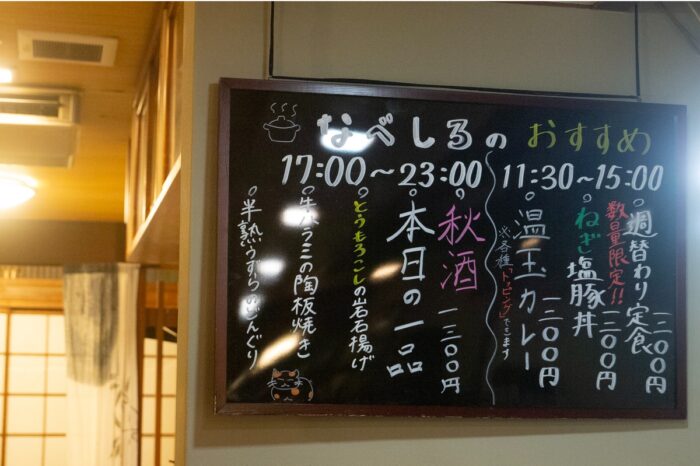 なべしるのおすすめ
11:30~15:00
○週替わり定食 一二〇〇円
数量限定!!
○ねぎ塩豚丼 一二〇〇円
○温玉カレー 一二〇〇円
※各種「トッピング」できます
17:00~23:00
○秋酒
○本日の一品 一三〇〇円
○とうもろこしの岩石揚げ
○牛ハラミの陶板焼き
○半熟うずらのどんぐり